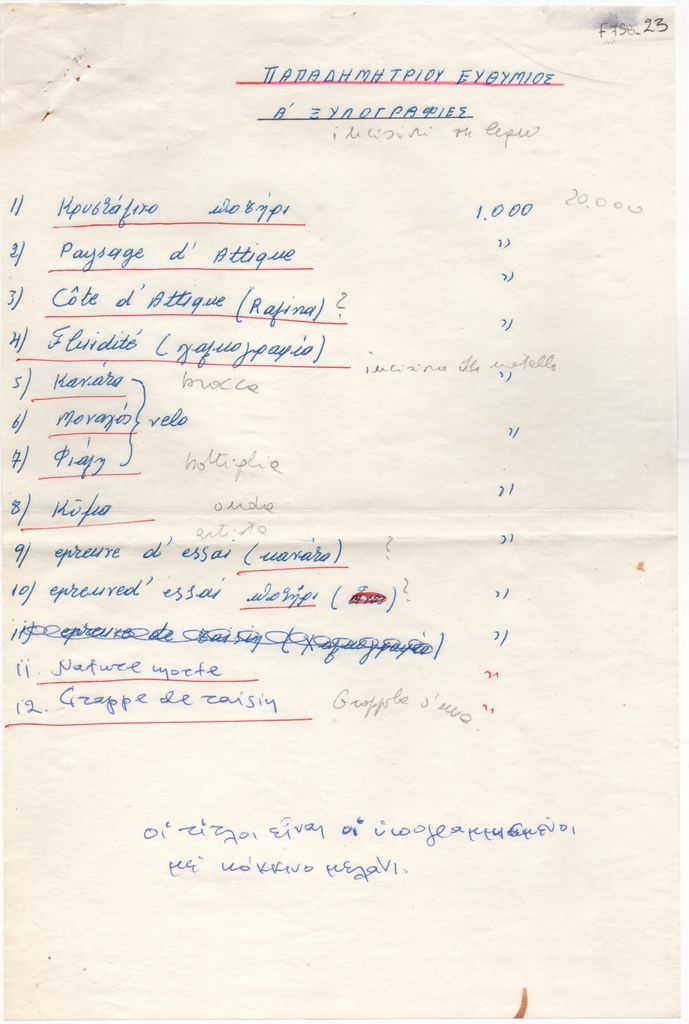 F 758. 23
ΠΑΠΑΔΗΜΗΤΡΙΟΥ ΕΥΘΥΜΙΟΣ
Α' ΞΥΛΟΓΡΑΦΙΕΣ
incisioni su legno
1) Κρυστάλινο ποτήρι 1.000 20.000
2) Paysage d' Attique "
3) Côte d' Attique (Rafina) ? "
4) Fluidité (χαλκογραφία) " incisione su metallo
5) Κανάτα brocca "
6) Μοναχός velo "
7) Φιάλη bottiglia "
8) Κῦμα onda "
artista
9) epreuve d' essai (κανάτα) ?
10) epreuve d' essai ποτήρι ( ) ? "
11) epreuve de raisin (χαλκογραφία) "
11. Nature morte "
12. Grappe de raisin Grappolo d'uva "
οἱ τίτλοι εἶναι οἱ ὑπογραμμισμένοι
μέ κόκκινο μελάνι.